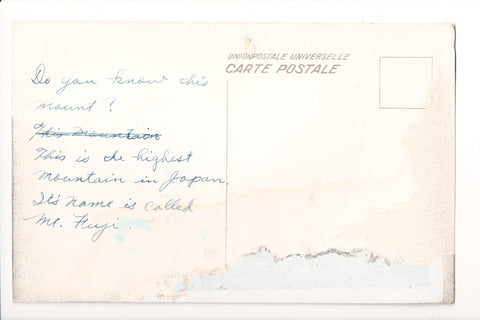 UNION POSTALE UNIVERSELLE
CARTE POSTALE
Do you know this
mount?
This mountain
This is the highest
mountain in Japan.
It's name is called
Mt. Fuji.